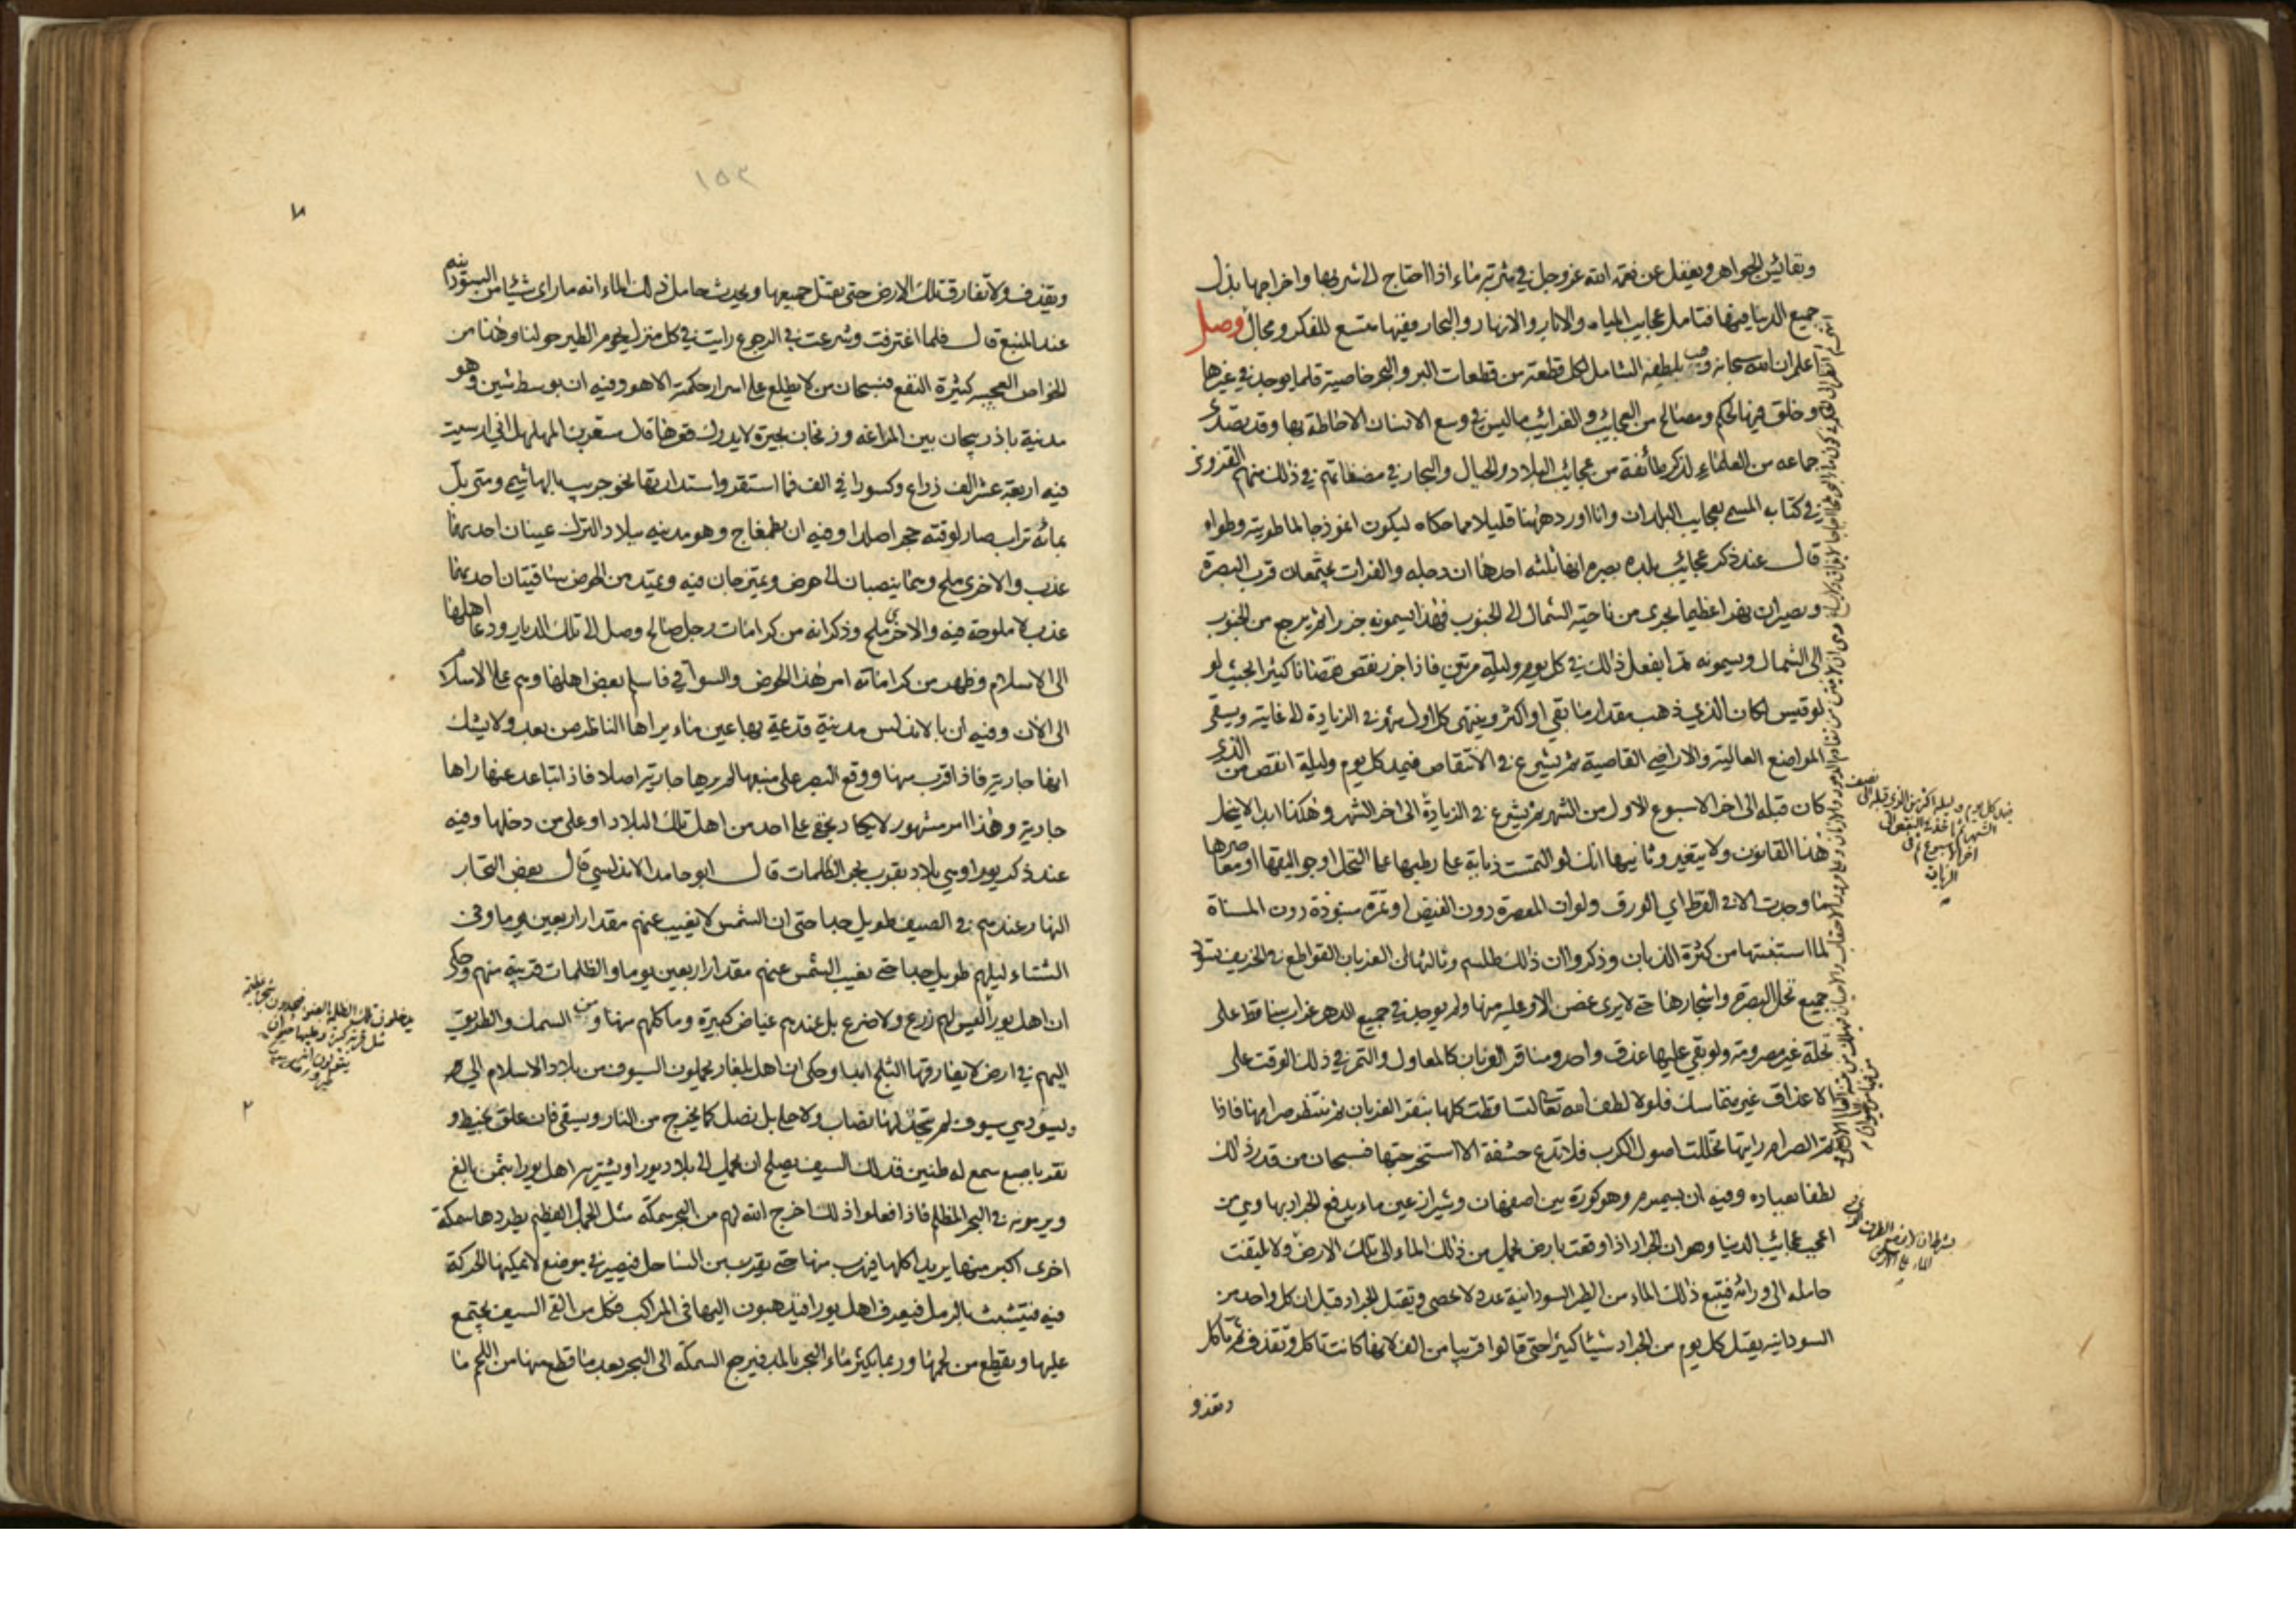 ونفائس الجواهر ويغفل عن نعمة الله عز وجل في شربة ماء اذا احتاج الى شربها واخراجها بذل
جميع الدنيا فيها فتامل عجايب المياه والابار والانهار والبحار ففيها متسع للفكر ومجال وصل
اعلم ان الله سبحانه وهب بلطفه الشامل لكل قطعة من قطعات البر والبحر خاصية قلما يوجد في غيرها
وخلق فيها لحكم ومصالح من العجائب والغرائب ما ليس في وسع الانسان الاحاطة بها وقد تصدى
جماعه من العلماء لذكر طائفة من عجائب البلاد والجبال والبحار في مصنفاتهم في ذلك منهم القزوينى
في كتاب المسمى بعجايب البلدان وانا اورد ههنا قليلا مما حكاه ليكون انموذجا لما طويته وطواه
قال عند ذكر عجائب بلده بصره انها ثلثه احدها ان دجله والفرات يجتمعان قرب البصرة
ويصيران نهرا عظيما يجرى من ناحية الشمال الى الجنوب فهذا يسمونه جزرا ثم يرجع من الجنوب
الى الشمال ويسمونه مدا يفعل ذلك في كل يوم وليلة مرتين فاذا جزر نقص نقصانا كثيرا بحيث لو
لو قيس لكان الذي ذهب مقدار ما بقي او اكثر وينتهى كل اول شهر في الزيادة الى غايته ويسقى
المواضع العالية والاراضي القاصية ثم يشرع في الانتقاص فيمد كل يوم وليلة انقص من الذى
كان قبله الى اخر الاسبوع الاول من الشهر ثم يشرع في الزيادة الى اخر الشهر وهكذا ابدا لا ينحل
هذا القانون ولا يتغير وثانيها انك لو التمست ذبابة على رطبها على النخل او جواليقها او معاصرها
ما وجدت الا في الفرط اي الورق ولو ان المعصرة دون الفيض او تمرة منبوذة دون المسناة
لما استبقتها من كثرة الذبان وذكروا ان ذلك لطلسم وثالثها ان الغربان القواطع في الخريف تسود
جميع نخل البصرة واشجارها حتى لا يرى غصن الا وعليه منها ولم يوجد في جميع الدهر غراب ساقط على
نخلة غير مصرومة ولو بقي عليها عذق واحد ومناقر الغربان كالمعاول والتمر في ذلك الوقت على
الاعذاق غير متماسك فلولا لطف الله تعالى لتساقطت كلها بنقر الغربان ثم تنتظر صرامها فاذا
تم الصرام رايتها تخللت اصول الكرب فلا تدع حشفة الا استخرجتها فسبحان من قدر ذلك
لطفا بعباده وفيه ان بسميرم وهو كورة بين اصفهان وشيراز عين ماء يدفع الجراد بها وهي من
اعجب عجائب الدنيا وهو ان الجراد اذا وقعت بارض يحمل من ذلك الماء الى تلك الارض ولا يلتفت
حامله الى ورائه فيتبع ذلك الماء من الطير السودانية عدد لا يحصى ويقتل الجراد قيل ان كل واحد من
السودانيه يقتل كل يوم من الجراد شيئا كثيرا حتى قالوا قريبا من الف لانها كانت تاكل وتقذف ثم تاكل
وتقذف
١٥٣
وتقذف ولا تفارق تلك الارض حتى يقتل جميعها ويحدث حامل ذلك الماء انه ما راى شيئا من السودانيه
عند المنبع قال فلما اغترفت وشرعت في الرجوع رايت في كل منزل يحوم الطير حولنا وهذا من
الخواص العجيبه كثيرة النفع فسبحان من لا يطلع على اسرار حكمته الا هو وفيه ان بوسط شيز وهو
مدنية باذربيجان بين المراغه وزنجان بحيرة لا يدرك قعرها قال مسعر بن المهلهل اني ارسيت
فيه اربعة عشر الف ذراع وكسورا في الف فما استقر واستدارتها نحو جريب بالهاشمي ومتى بل
بمائه تراب صار لوقته حجرا صلدا وفيه ان بطمغاج وهو مدينه ببلاد الترك عينان احديهما
عذب والاخرى ملح وهما ينصبان الى حوض ويمتزجان فيه ويمتد من الحوض ساقيتان احديهما
عذب لا ملوحة فيه والاخرى ملح وذكر انه من كرامات رجل صالح وصل الى تلك الديار ودعا اهلها
الى الاسلام وظهر من كراماته امر هذا الحوض والسواقي فاسلم بعض اهلها وهم على الاسلام
الى الان وفيه ان بالاندلس مدينة قديمة بها عين ماء يراها الناظر من بعد ولا يشك
انها جارية فاذا قرب منها ووقع البصر على منبعها لم يرها جارية اصلا فاذا تباعد عنها راها
جارية وهذا امر مشهور لا يكاد يخفى على احد من اهل تلك البلاد او على من دخلها وفيه
عند ذكر يورا وهي بلاد بقرب بحر الظلمات قال ابو حامد الاندلسي قال بعض التجار
النهار عندهم في الصيف طويل جدا حتى ان الشمس لا يغيب عنهم مقدار اربعين يوما وفي
الشتاء ليلهم طويل جدا حتى يغيب الشمس عنهم مقدار اربعين يوما والظلمات قريبة منهم وحكى
ان اهل يورا ليس لهم زرع ولا ضرع بل عندهم غياض كثيرة وما كلهم منها ومن السمك والطريق
اليهم في ارض لا يفارقها الثلج ابدا وحكى ان اهل بلغار يحملون السيوف من بلاد الاسلام الى
ويسو وهي سيوف لم تتخذ لها نصاب ولا حلي بل نصل كما يخرج من النار ويسقى فان علق بخيط و
نقر باصبع سمع له طنين فذلك السيف يصلح ان يحمل الى بلاد يورا ويشتريه اهل يورا بثمن بالغ
ويرمونه في البحر المظلم فاذا فعلوا ذلك اخرج الله لهم من البحر سمكة مثل الجبل العظيم يطردها سمكة
اخرى اكبر منها يريد اكلها فيهرب منها حتى يقرب من الساحل فيصير في موضع لا يمكنها الحركة
فيه فيتشبث بالرمل فيعرف اهل يورا فيذهبون اليها في المراكب فكل من القى السيف يجتمع
عليها ويقطع من لحمها وربما يكثر ماء البحر بالمد فيرجع السمكة الى البحر بعد ما قطع منها من اللحم ما